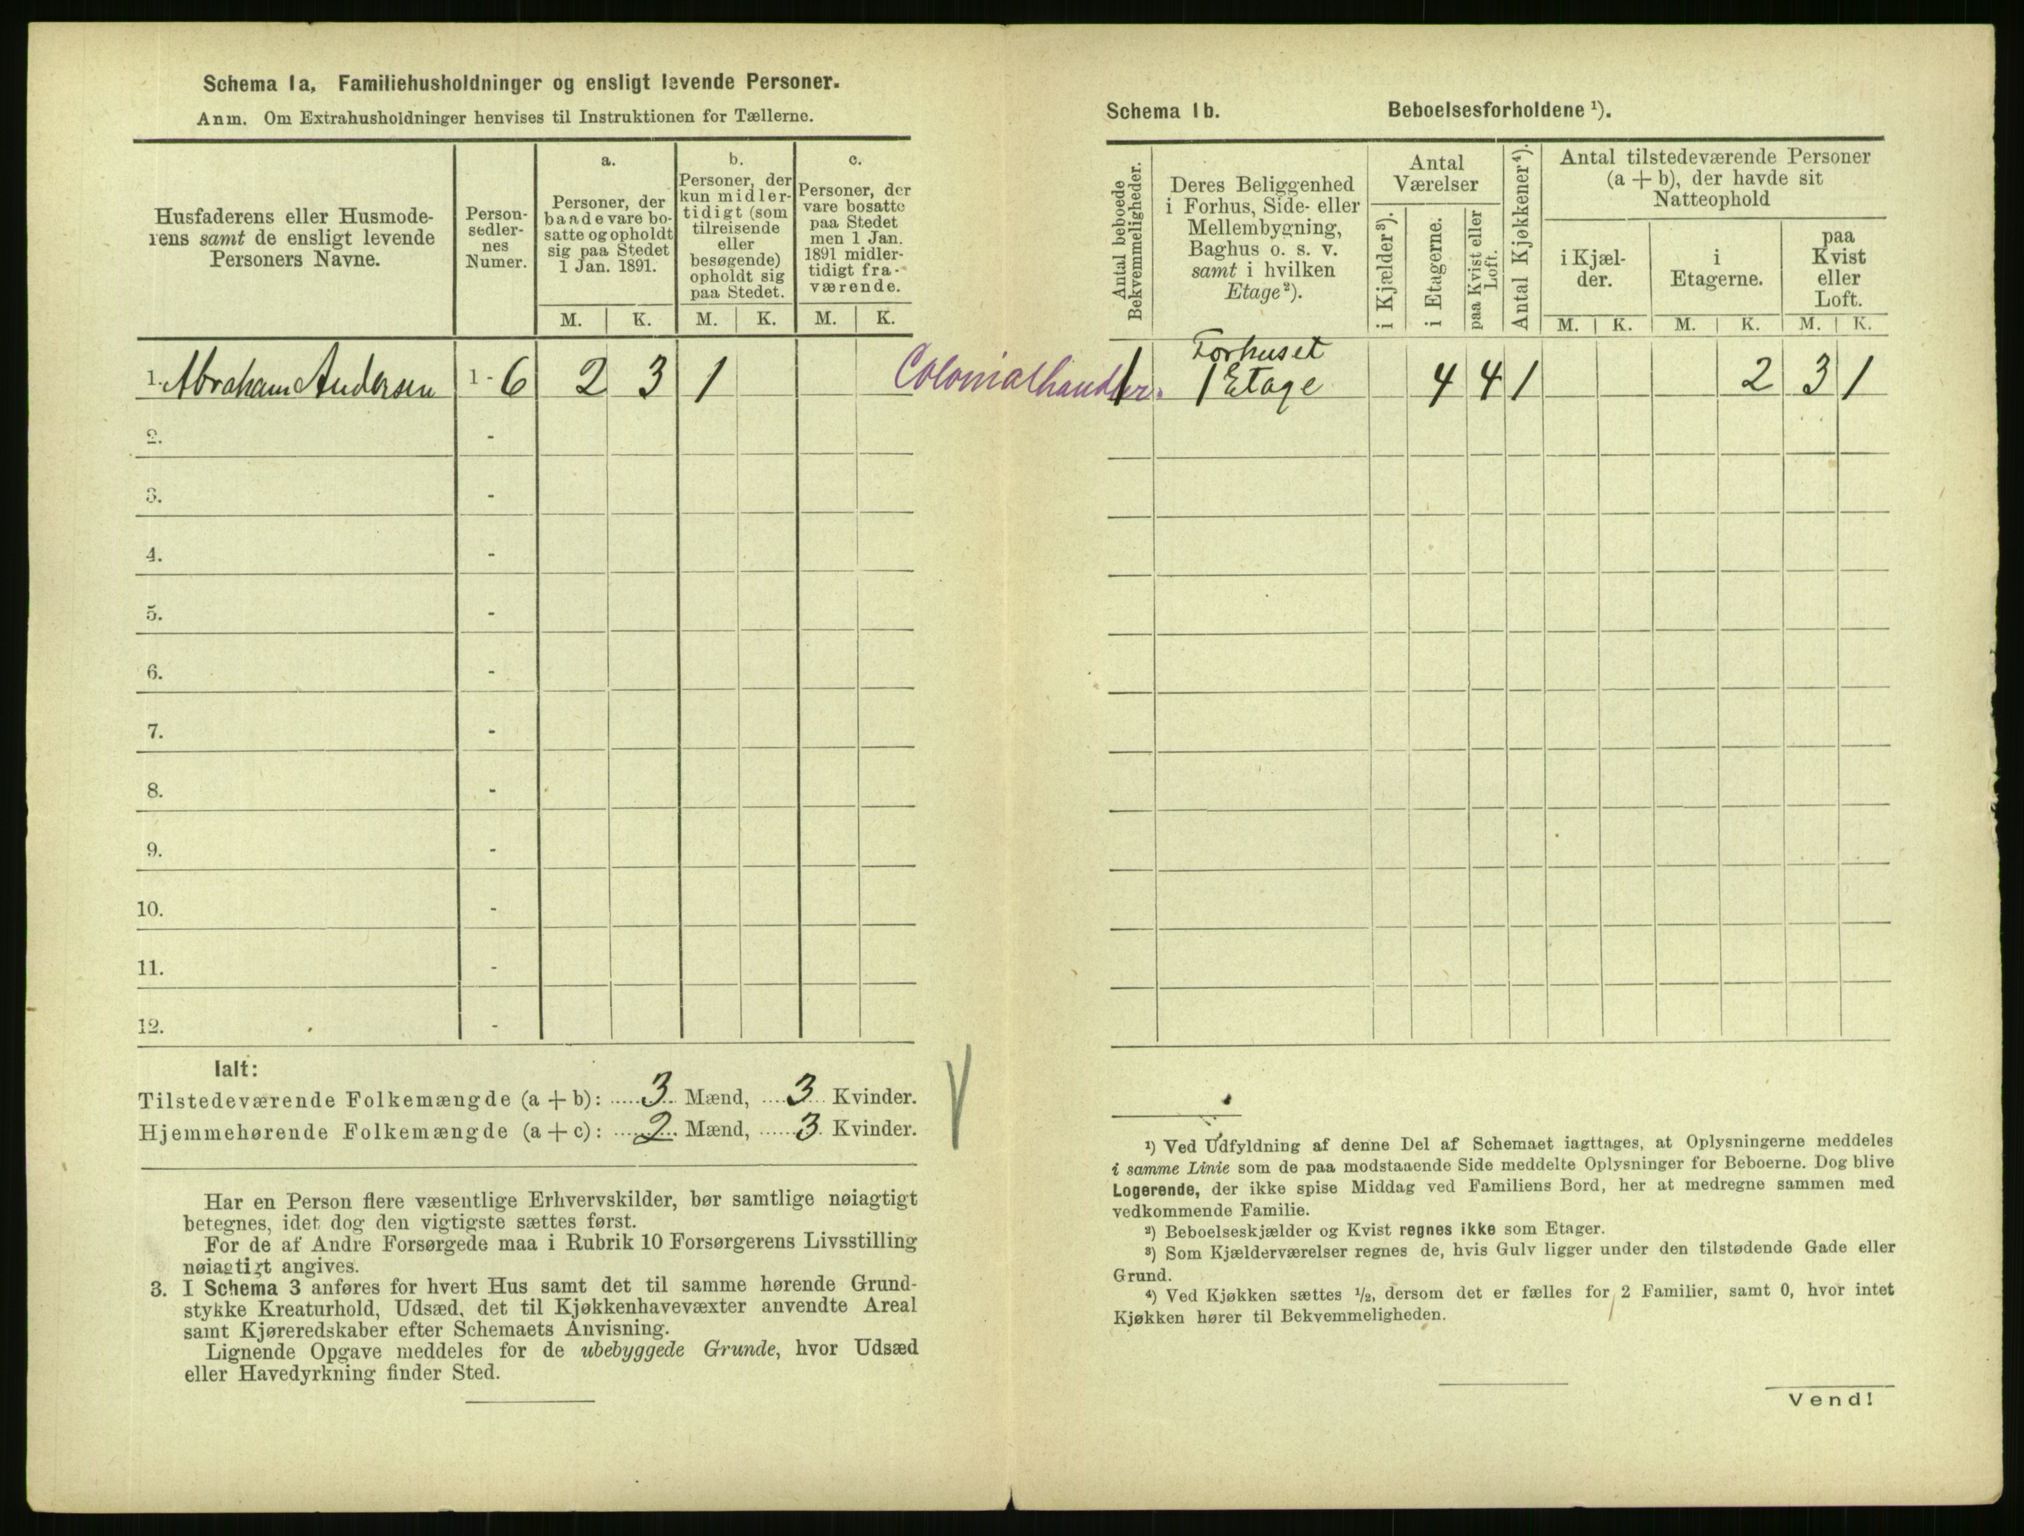 Schema 1a, Familiehusholdninger og ensligt levende Personer.
Anm. Om Extrahusholdninger henvises til Instruktionen for Tællerne.
Husfaderens eller Husmode-
rens samt de ensligt levende
Personers Navne.
Person-
sedler-
nes
Numer.
a.
Personer, der
baade vare bo-
satte og opholdt
sig paa Stedet
1 Jan. 1891.
b.
Personer, der
kun midler-
tidigt (som
tilreisende
eller
besøgende)
opholdt sig
paa Stedet.
c.
Personer, der
vare bosatte
paa Stedet
men 1 Jan.
1891 midler-
tidigt fra-
værende.
M. K. M. K. M. K.
1. Abraham Andersen 1 - 6 2 3 1
Colonialhandler.
2. -
3. -
4. -
5. -
6. -
7. -
8. -
9. -
10. -
11. -
12. -
Ialt:
Tilstedeværende Folkemængde (a + b): 3 Mænd, 3 Kvinder.
Hjemmehørende Folkemængde (a + c): 2 Mænd, 3 Kvinder.
Har en Person flere væsentlige Erhvervskilder, bør samtlige nøiagtigt
betegnes, idet dog den vigtigste sættes først.
For de af Andre Forsørgede maa i Rubrik 10 Forsørgerens Livsstilling
nøiagtigt angives.
3. I Schema 3 anføres for hvert Hus samt det til samme hørende Grund-
stykke Kreaturhold, Udsæd, det til Kjøkkenhavevæxter anvendte Areal
samt Kjøreredskaber efter Schemaets Anvisning.
Lignende Opgave meddeles for de ubebyggede Grunde, hvor Udsæd
eller Havedyrkning finder Sted.
Schema 1b. Beboelsesforholdene ¹).
Antal beboede
Bekvemmeligheder.
Deres Beliggenhed
i Forhus, Side- eller
Mellembygning,
Baghus o. s. v.
samt i hvilken
Etage²).
Antal
Værelser
i Kjælder³).
i Etagerne.
paa Kvist eller
Loft.
Antal Kjøkkener⁴).
Antal tilstedeværende Personer
(a + b), der havde sit
Natteophold
i Kjæl-
der.
i
Etagerne.
paa
Kvist
eller
Loft.
M. K. M. K. M. K.
Forhuset
1 1 Etage 4 4 1 2 3 1
¹) Ved Udfyldning af denne Del af Schemaet iagttages, at Oplysningerne meddeles
i samme Linie som de paa modstaaende Side meddelte Oplysninger for Beboerne. Dog blive
Logerende, der ikke spise Middag ved Familiens Bord, her at medregne sammen med
vedkommende Familie.
²) Beboelseskjælder og Kvist regnes ikke som Etager.
³) Som Kjælderværelser regnes de, hvis Gulv ligger under den tilstødende Gade eller
Grund.
⁴) Ved Kjøkken sættes ½, dersom det er fælles for 2 Familier, samt 0, hvor intet
Kjøkken hører til Bekvemmeligheden.
Vend!